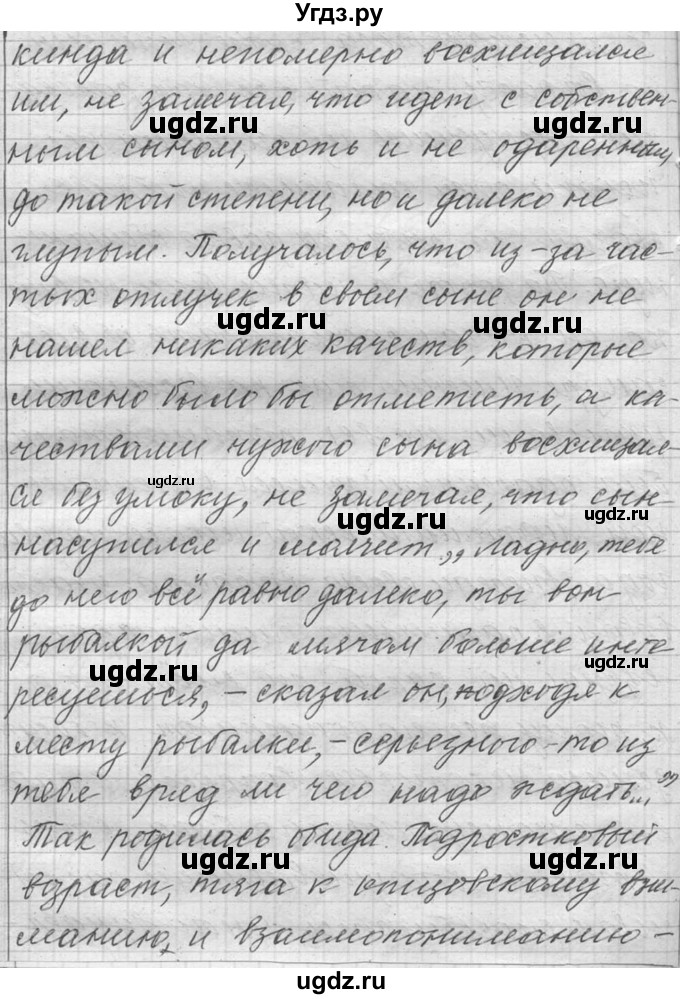 Угдз.ру
кинда и непомерно восхищался
им, не замечая, что идет с собствен-
ugdz.ru ugdz.ru
ным сыном, хоть и не одаренным
до такой степени, но и далеко не
глупым. Получалось, что из-за час-
тых отлучек в своем сыне он не
ugdz.ru ugdz.ru
нашел никаких качеств, которые
можно было бы отметить, а ка-
чествами чужого сына восхищал-
ugdz.ru
ся без умолку, не замечая, что сын
ugdz.ru ugdz.ru
насупился и молчит. „Ладно, тебе
до него всё равно далеко, ты вон
рыбалкой да мячом больше инте
ugdz.ru ugdz.ru
ресуешься, – сказал он, подходя к
месту рыбалки, – серьезного-то из
тебя вряд ли чего надо ждать..."
Так родилась обида. Подростковый
ugdz.ru ugdz.ru
возраст, тяга к отцовскому вни-
манию, и взаимопониманию –
ugdz.ru